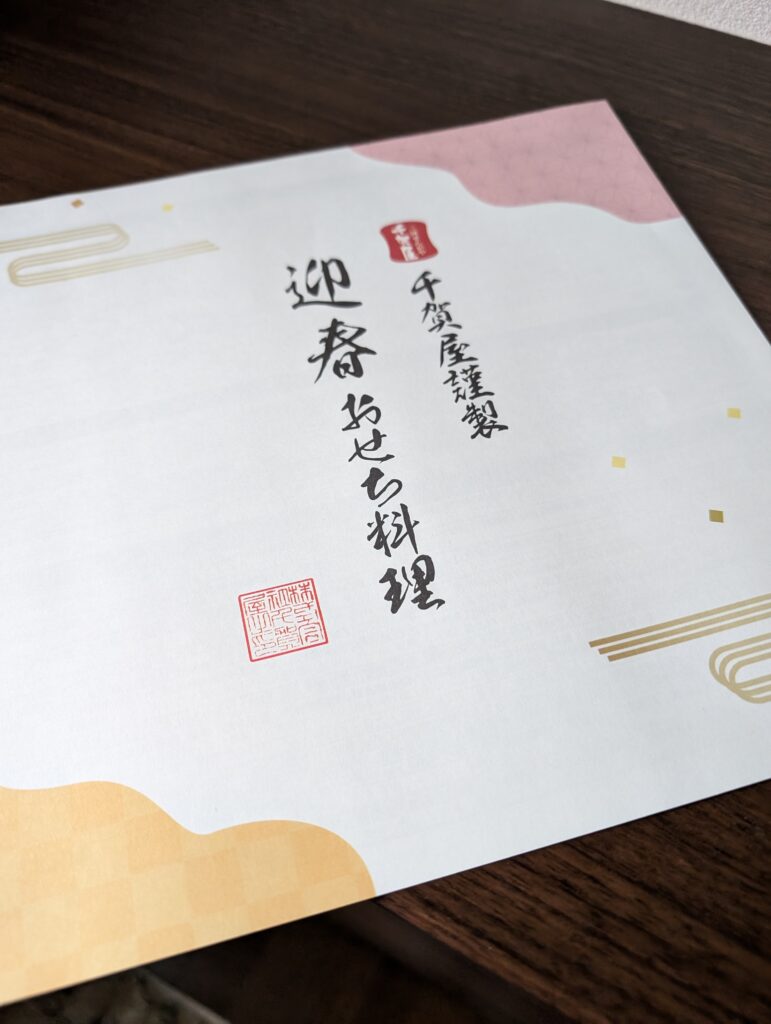 千賀屋
千賀屋謹製
迎春おせち料理